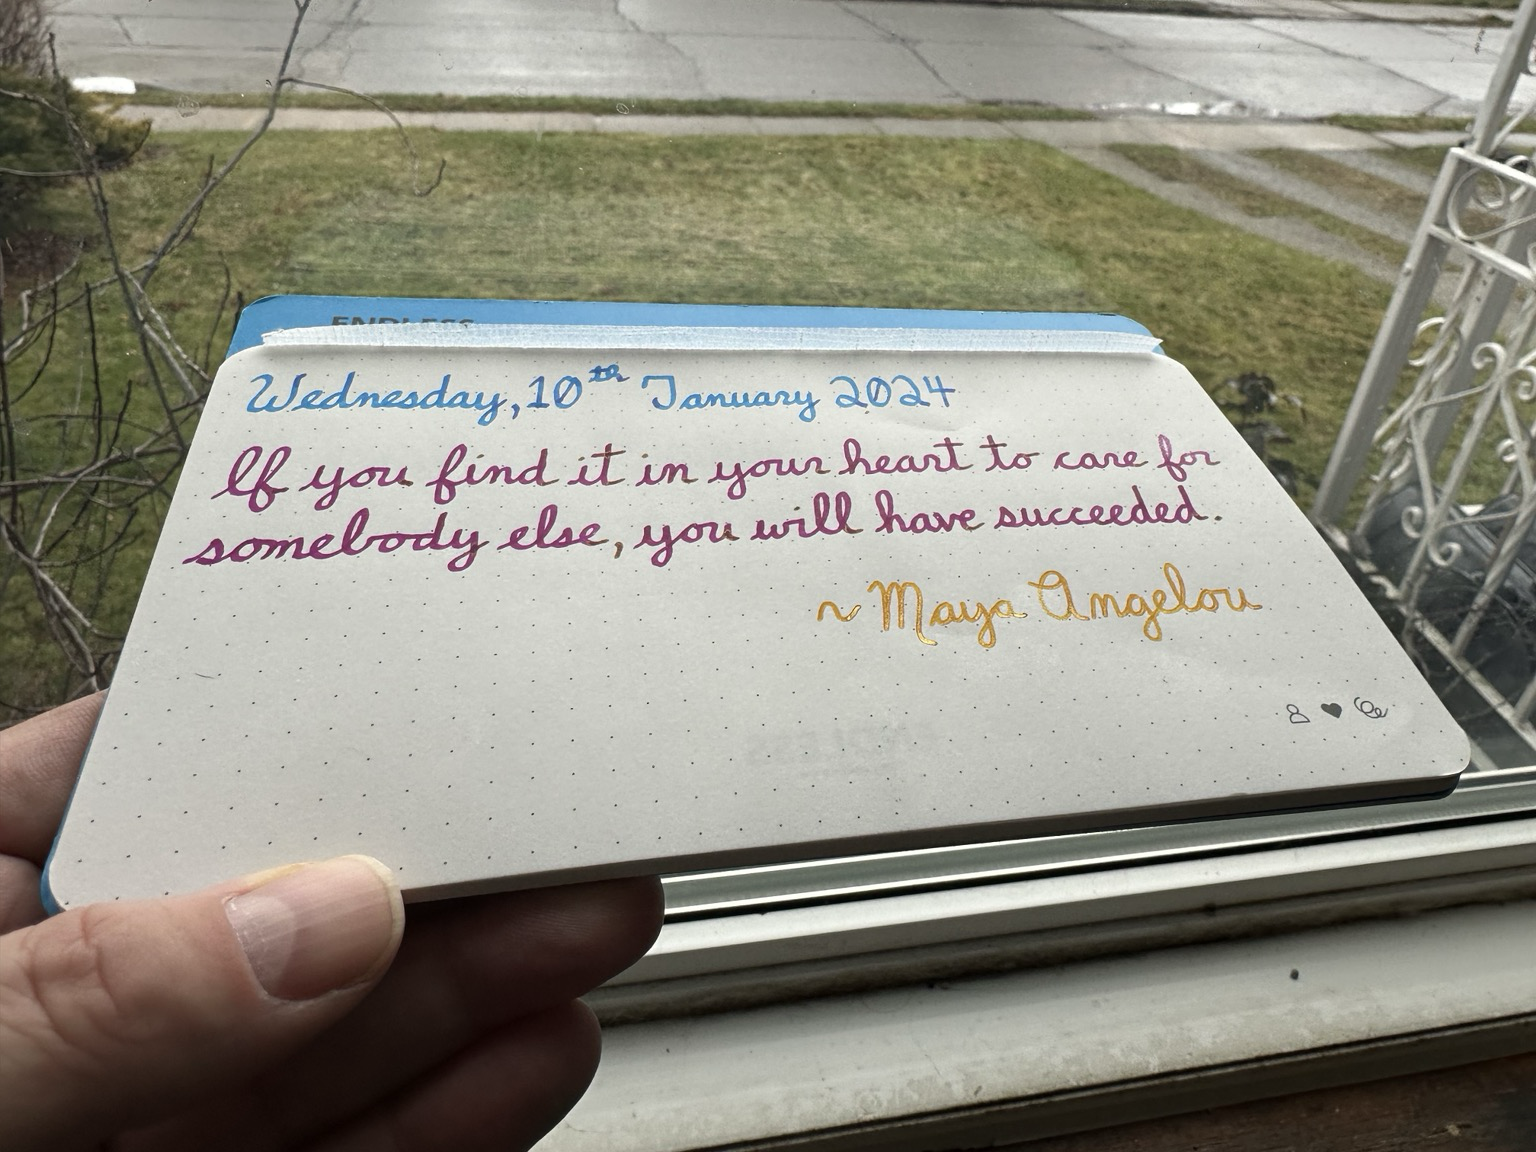 ENDLESS
Wednesday, 10th January 2024
If you find it in your heart to care for
somebody else, you will have succeeded.
~ Maya Angelou